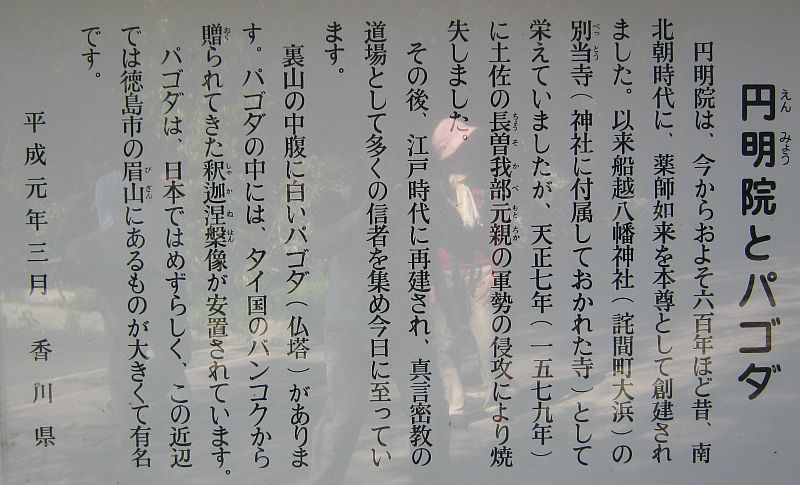 円明院とパゴダ
えん みょう
円明院は、今からおよそ六百年ほど昔、南
北朝時代に、薬師如来を本尊として創建され
ました。以来船越八幡神社(詫間町大浜)の
別当寺(神社に付属しておかれた寺)として
べっ とう
栄えていましたが、天正七年(一五七九年)
に土佐の長曽我部元親の軍勢の侵攻により焼
ちょう そ か べ もと ちか
失しました。
その後、江戸時代に再建され、真言密教の
道場として多くの信者を集め今日に至ってい
ます。
裏山の中腹に白いパゴダ(仏塔)がありま
す。パゴダの中には、タイ国のバンコクから
贈られてきた釈迦涅槃像が安置されています。
おく しゃ か ね はん
パゴダは、日本ではめずらしく、この近辺
では徳島市の眉山にあるものが大きくて有名
び ざん
です。
平成元年三月 香川県